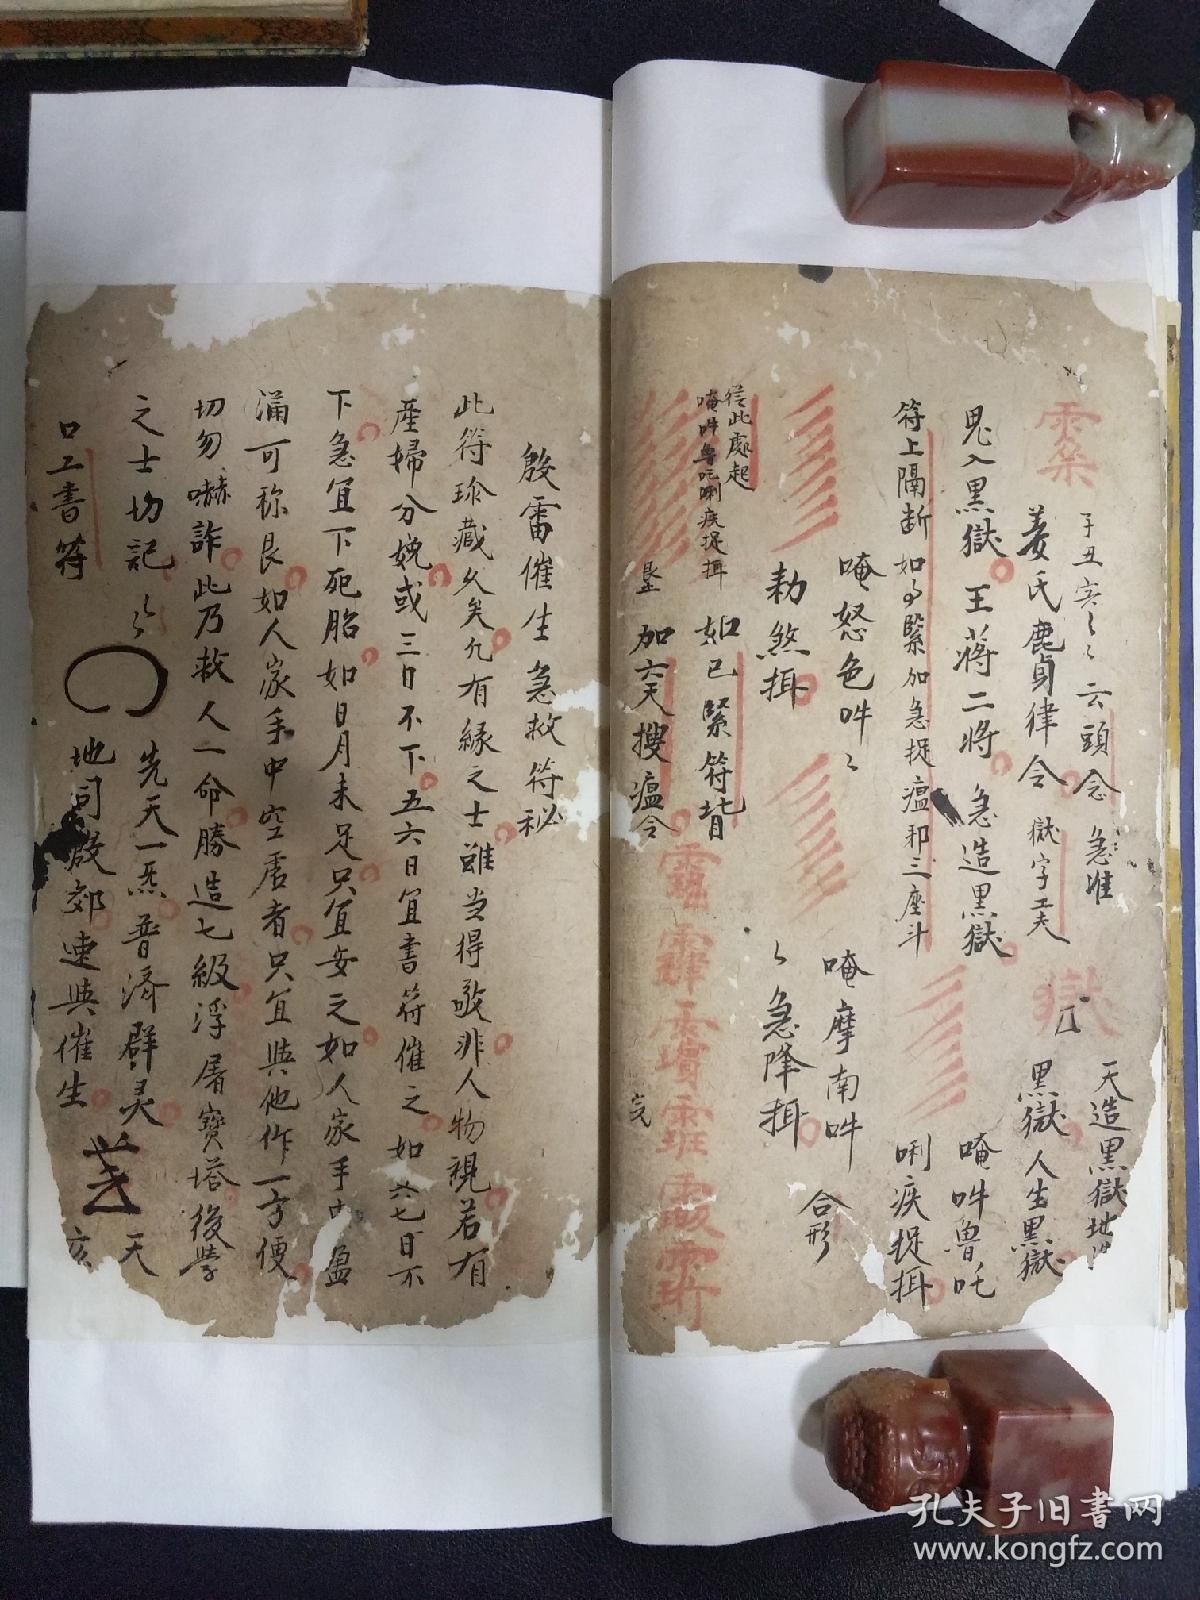 子丑亥〻〻 云頭念 急准
天造黑獄地
姜氏鹿貞律令 獄字
獄
黑獄 人生黑獄
鬼入黑獄 王蔣二將 急造黑獄
唵吽魯吒
符上隔断 如 緊加急捉瘟邪三座斗
唎疾捉挕
唵怒色吽〻
唵摩南吽
合形
勅煞挕
〻急降挕
從此處起
唵吽魯吒唎疾捉挕
如已緊符背
加 搜瘟令
殷雷催生急救符秘
此符珍藏久矣凢有緣之士雖当得敬非人物視若有
產婦分娩或三日不下五六日宜書符催之如六七日不
下急宜下死胎如日月未足只宜安之如人家手中盈
滿可称良如人家手中空虛者只宜與他作一方便
切勿嚇詐此乃救人一命勝造七級浮屠寶塔後學
之士切記〻〻 先天一炁普濟群灵 天
口工書符 地司殷郊速與催生
孔夫子旧书网
www.kongfz.com